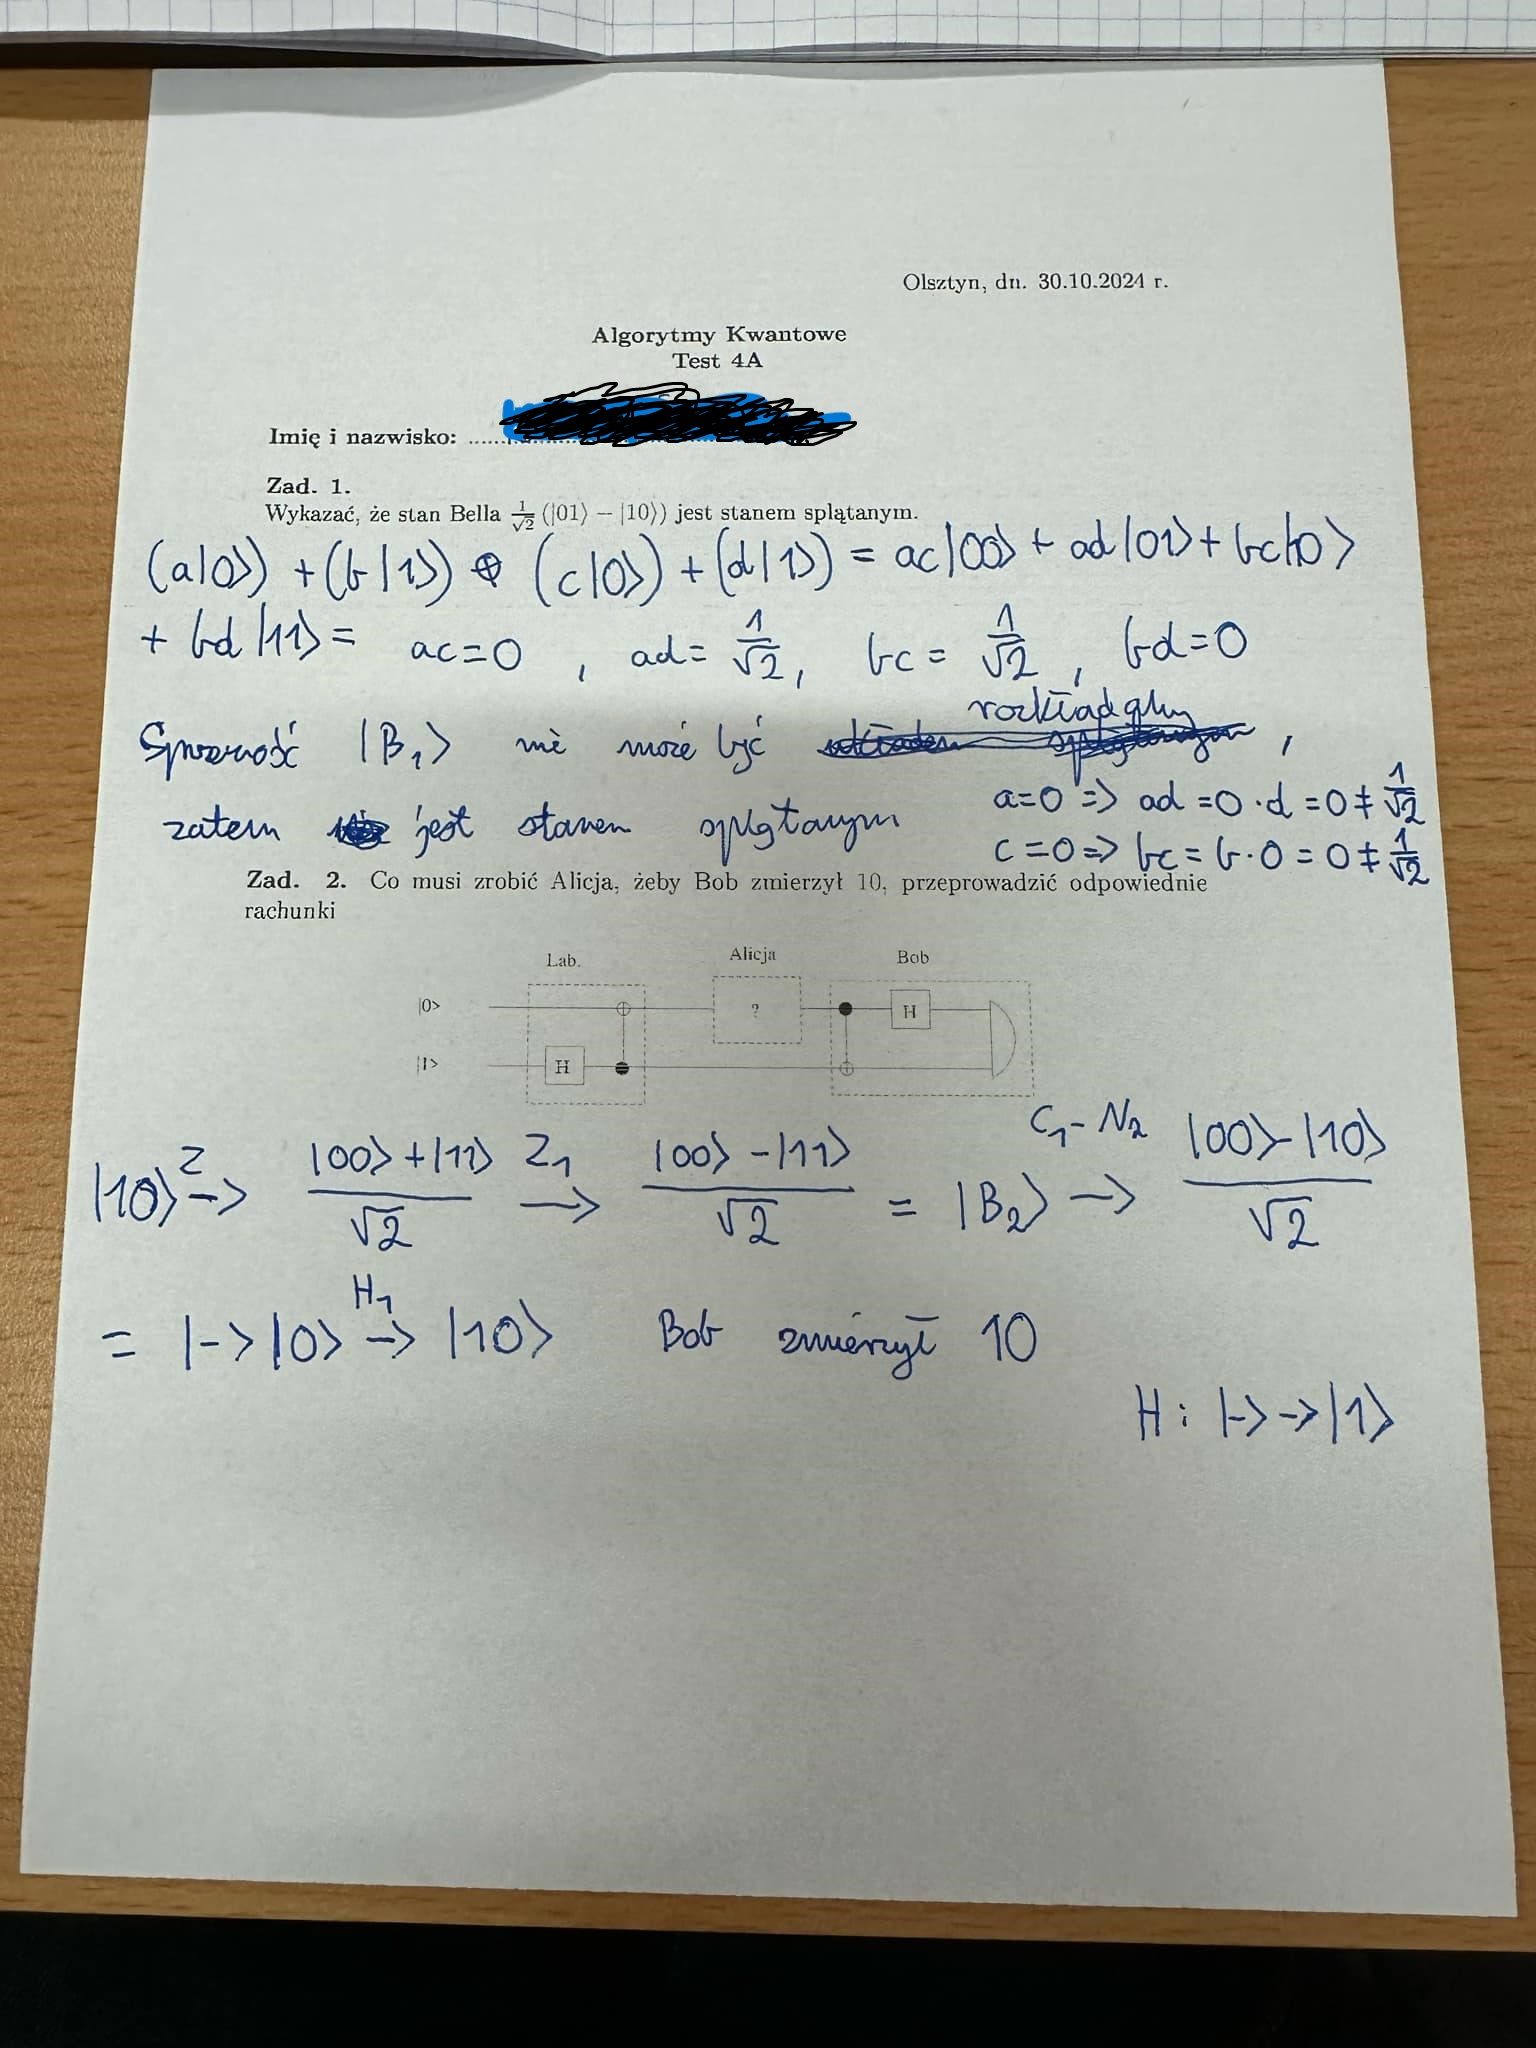 Olsztyn, dn. 30.10.2024 r.
Algorytmy Kwantowe
Test 4A
Imię i nazwisko: ......
Zad. 1.
Wykazać, że stan Bella 1/√2 (|01⟩ − |10⟩) jest stanem splątanym.
(a|0⟩) + (b|1⟩) ⊕ (c|0⟩) + (d|1⟩) = ac|00⟩ + ad|01⟩ + bc|10⟩
+ bd|11⟩ = ac=0 , ad= 1/√2, bc = 1/√2, bd=0
rozkładalny
|B₁⟩ nie może być ,
a=0 => ad =0·d =0≠ 1/√2
zatem jest stanem splątanym
c=0=> bc = b·0 = 0 ≠ 1/√2
Zad. 2. Co musi zrobić Alicja, żeby Bob zmierzył 10, przeprowadzić odpowiednie
rachunki
Lab. Alicja Bob
|0> ? H
|1> H
|10⟩ Z→ |00⟩+|11⟩/√2 Z₁→ |00⟩−|11⟩/√2 = |B₂⟩ C₁−N₂→ |00⟩−|10⟩/√2
= |−⟩|0⟩ H₁→ |10⟩ Bob zmierzył 10
H: |−⟩→|1⟩